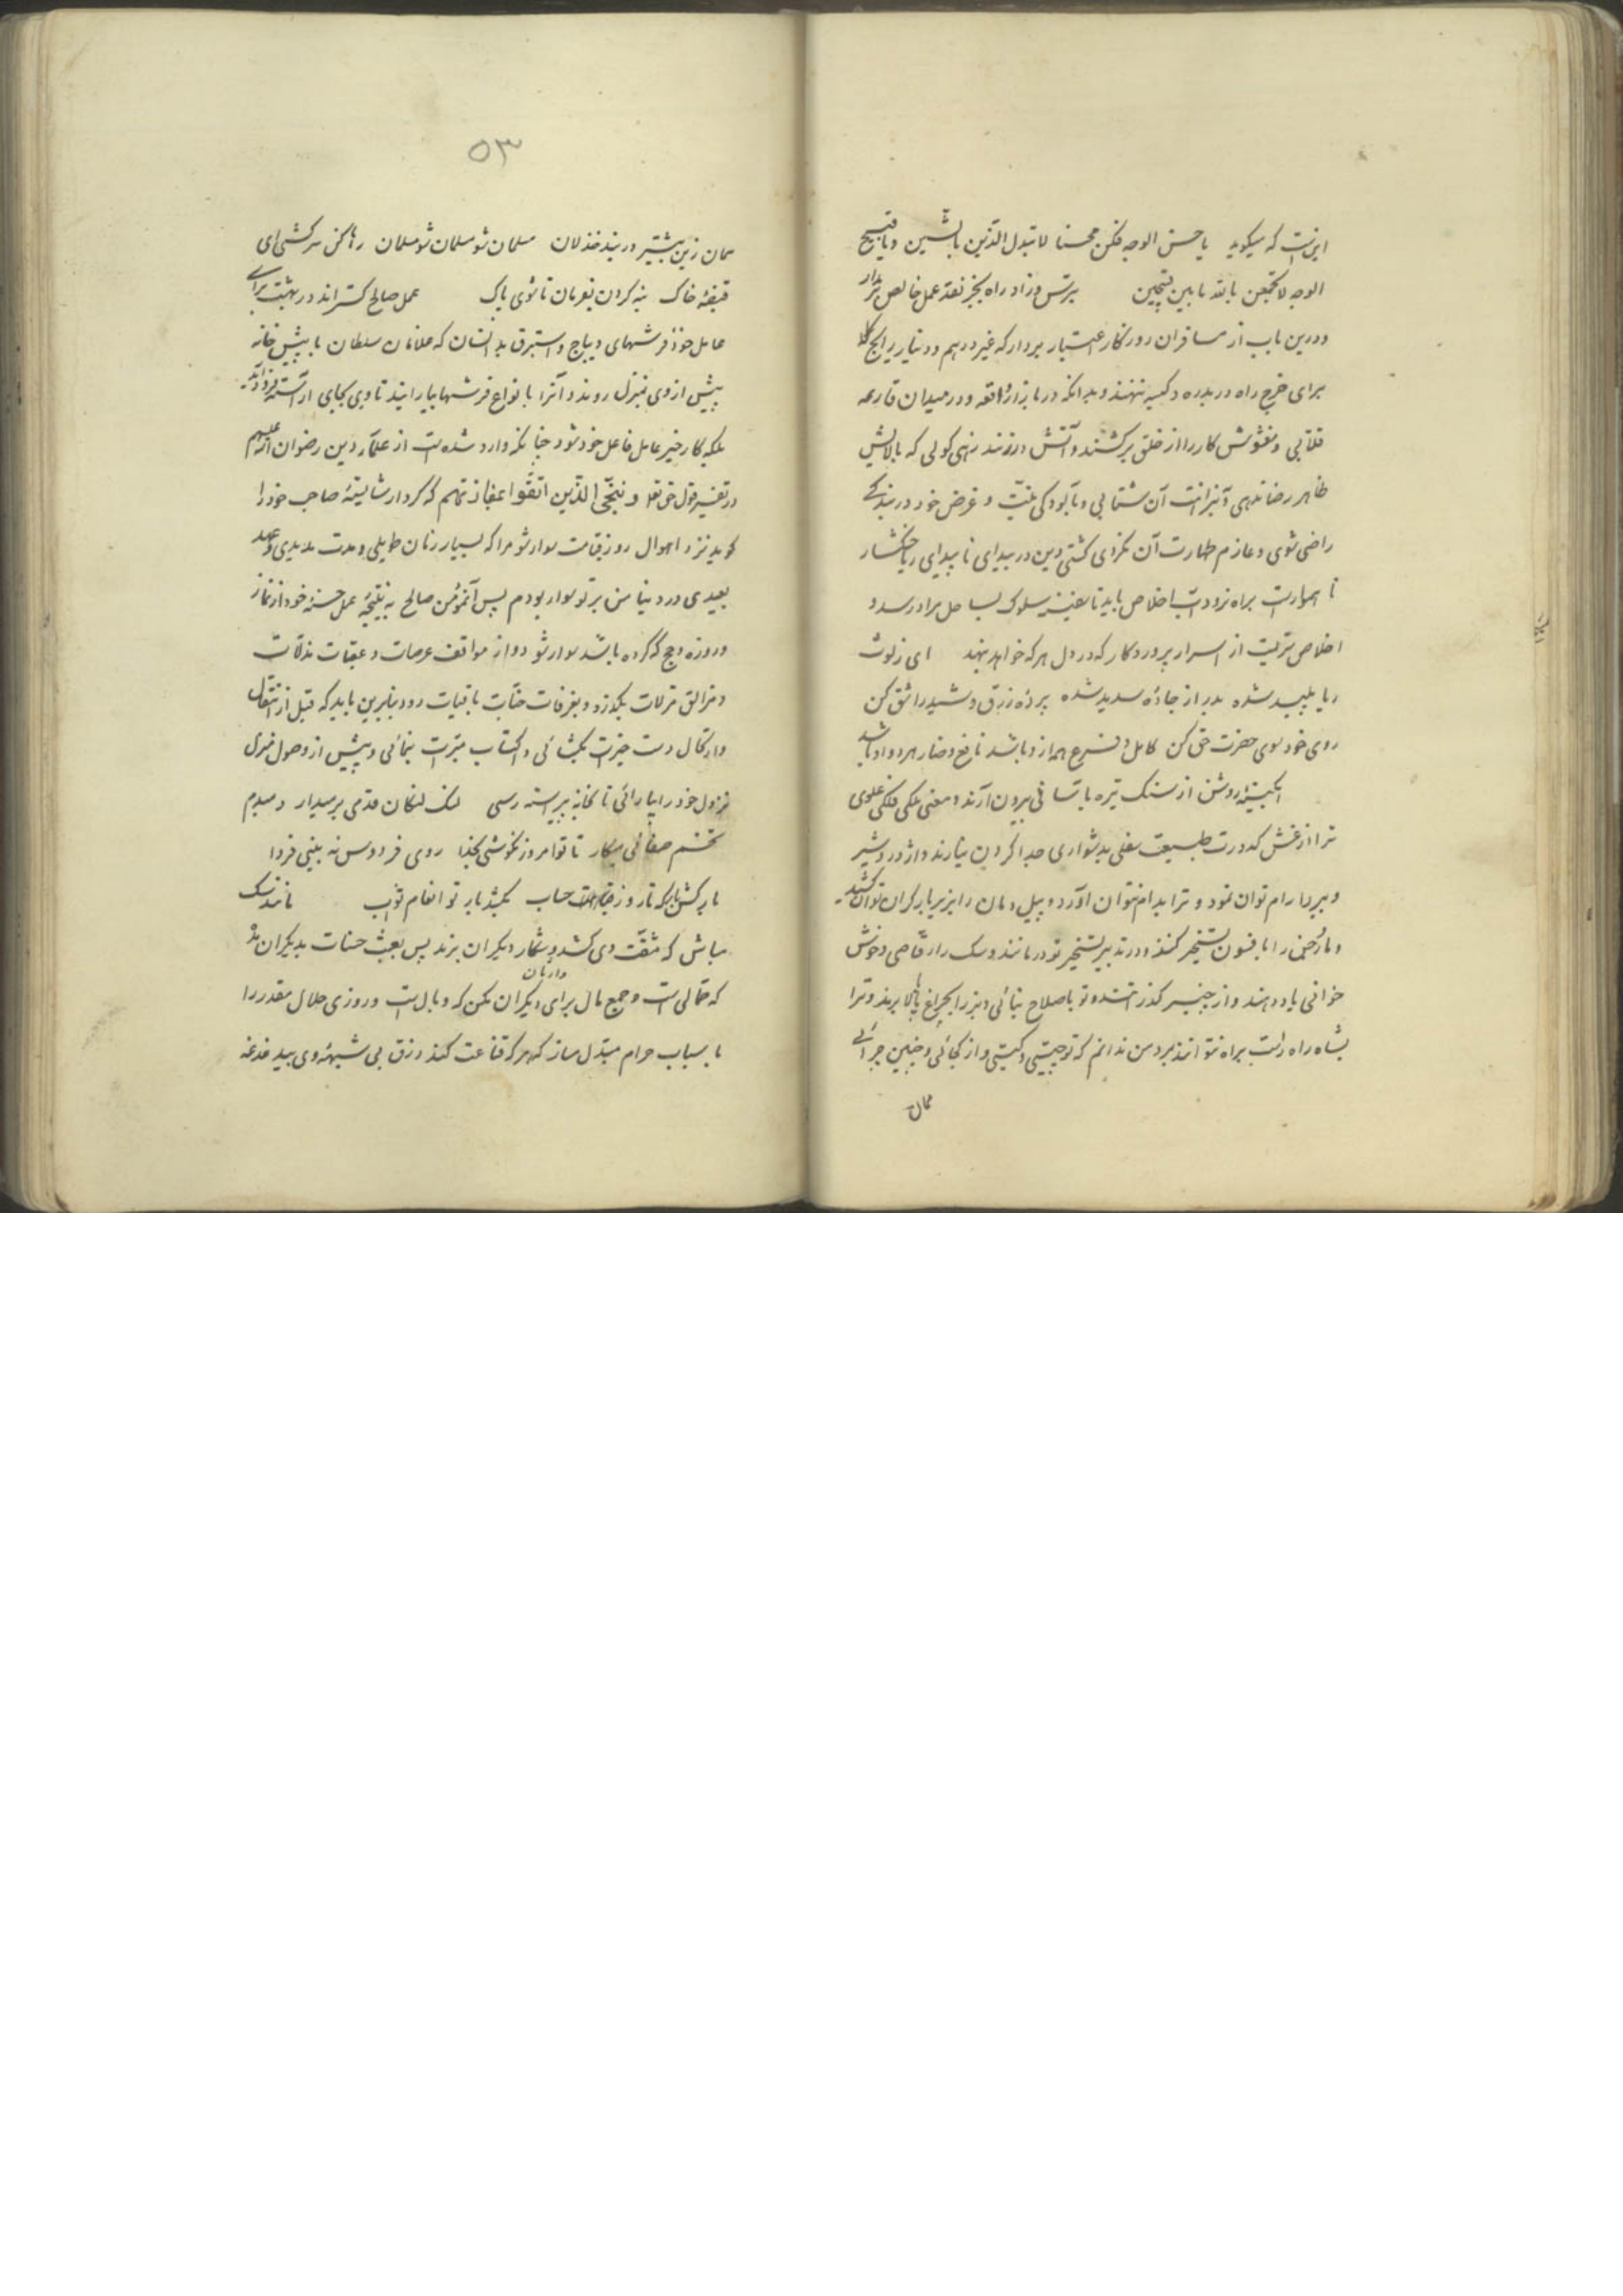 اینست که میکوید یا حسن الوجه فکن محسنا لا تبدل الذین بالشین و یا قبیح
الوجه لا تجمعن بالله ما بین قبیحین بترس و زاد راه بجز نقد عمل خالص برمدار
و درین باب از مسافران روزکار اعتبار بردار که غیر درهم و دینار رایج کلا
برای خرج راه در بدره و کیسه ننهند و بدانکه در بازار واقعه و در میدان قارعه
قلابی و مغشوش کار را از خلق برکشند و آتش درزنند زهی کولی که بآلایش
ظاهر رضا ندهی و بآبدانت آن شتابی و بآلودکی نیت و غرض خود در بندکی
راضی شوی و عازم طهارت آن نکردی کشتی دین در بیدای ناپیدای ریا خشکسار
ناهموارست براه نرود آب اخلاص باید تا سفینه سلوک بساحل مراد رسد و
اخلاص سریست از اسرار پروردکار که در دل هر که خواهد بنهد ای زلوث
ریا پلید شده بدر از جاده سدید شده پرده زرق و شید را شق کن
روی خود سوی حضرت حق کن کامل و شرع همه از و باشد نافع و ضار هر دو او باشد
آبکینه روشن از سنک تیره باسانی بیرون آرند و معنی ملکی فلکی علوی
ترا از غش کدورت طبیعت سفلی بدشواری جدا کردن نیارند و اژدر و شیر
و ببر را رام توان نمود و ترا بدام نتوان آورد و پیل دمان را بزیر بار کران توان کشید
و مار حمی را بافسون تسخیر کنند و در تدبیر تسخیر تو درمانند و سک را رقاصی و خرس
خوانی یاد دهند و از چنبر کذرانند و تو باصلاح نیائی و بز را بچراغ پا بالا برند و ترا
بشاه راه راست براه نتوانند برد من ندانم که تو چیستی و کیستی و از کجائی و چنین چرائی
همان
۵۳
همان زین بیشتر در بند خذلان مسلمان شو مسلمان شو مسلمان رها کن سرکشی ای
قبضه خاک بنه کردن بفرمان تا شوی پاک عمل صالح کستراند در بهشت برای
عامل خود فرشهای دیباج و استبرق بدانسان که غلامان سلطان با پیش خانه
پیش از وی بمنزل روند و آنرا بانواع فرشها بیارایند تا وی بجای آراسته فرود آید
بلکه کار خیر عامل فاعل خود شود چنانکه وارد شده است از علماء دین رضوان الله علیهم
در تفسیر قول حق تعالی و ینجی الذین اتقوا بمفازتهم که کردار شایسته صاحب خود را
کوید نزد اهوال روز قیامت سوار شو مرا که بسیار زمان طویلی و مدت مدیدی و عهد
بعیدی در دنیا من بر تو سوار بودم پس آنمؤمن صالح به نتیجه عمل حسنه خود از نماز
و روزه و حج که کرده باشد سوار شود و از مواقف عرصات و عقبات مذلات
و مزالق مزلات بکذرد و بغرفات جنات باقیات رود بنابرین باید که قبل از انتقال
و ارتحال دست خیرت بکشائی و اکتساب مبرت بنمائی و پیش از وصول منزل
نزول خود را بیارائی تا بخانه پیراسته رسی لنک لنکان قدمی بر میدار و مبدم
تخم صفائی میکار تا تو امروز نکوشی بخدا روی فردوس نه بینی فردا
بار کش بارکه تا روز قیامت حساب بکشد بار تو انعام ثواب مانند سک
مباش که مشقت وی کشد و شکار دیکران برند پس بعبث حسنات بدیکران مده
که حمالی است و جمع مال برای وارثان دیکران مکن که وبال است و روزی حلال مقدر را
باسباب حرام مبدل مساز که هر که قناعت کند رزق بی شبهه وی بیدغدغه